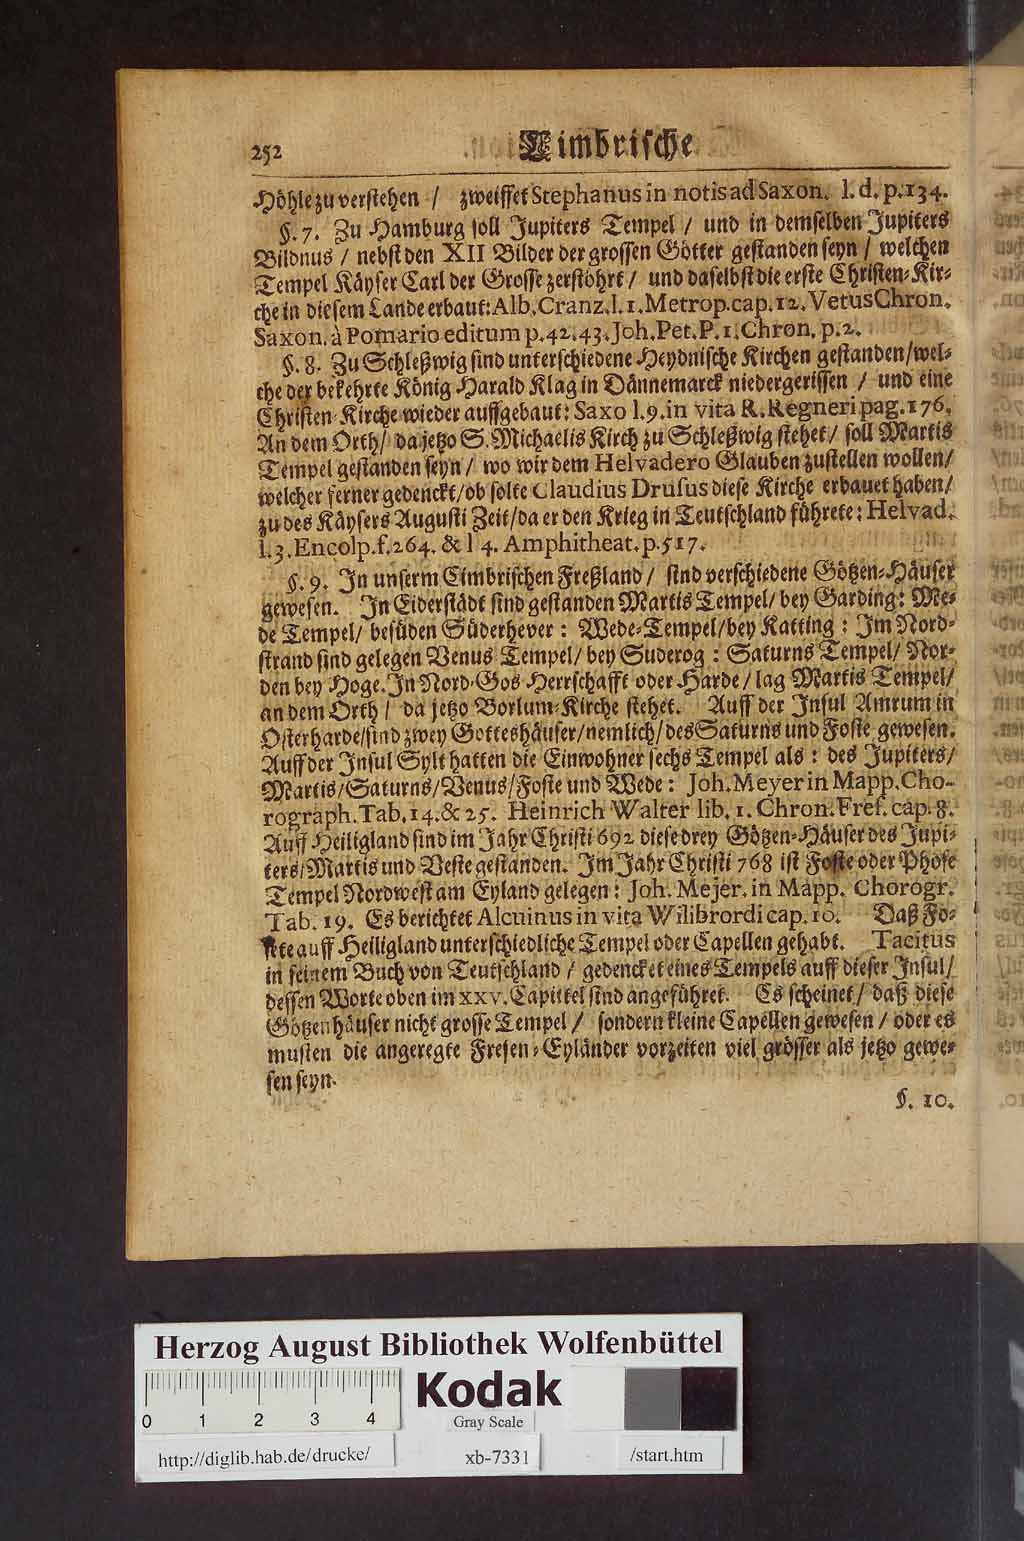 252 Cimbrische
Höhle zu verstehen / zweiffet Stephanus in notis ad Saxon. l. d. p. 134.
§. 7. Zu Hamburg soll Jupiters Tempel / und in demselben Jupiters
Bildnus / nebst den XII Bilder der grossen Götter gestanden seyn / welchen
Tempel Käyser Carl der Grosse zerstöhrt / und daselbst die erste Christen-Kir-
che in diesem Lande erbaut: Alb. Cranz. l. 1. Metrop. cap. 12. Vetus Chron.
Saxon. à Pomario editum p. 42. 43. Joh. Pet. P. 1. Chron. p. 2.
§. 8. Zu Schleßwig sind unterschiedene Heydnische Kirchen gestanden / wel-
che der bekehrte König Harald Klag in Dännemarck niedergerissen / und eine
Christen-Kirche wieder auffgebaut: Saxo l. 9. in vita R. Regneri pag. 176.
An dem Orth / da jetzo S. Michaelis Kirch zu Schleßwig stehet / soll Martis
Tempel gestanden seyn / wo wir dem Helvadero Glauben zustellen wollen /
welcher ferner gedenckt / ob solte Claudius Drusus diese Kirche erbauet haben /
zu des Käysers Augusti Zeit / da er den Krieg in Teutschland führete: Helvad.
l. 3. Encolp. f. 264. & l 4. Amphitheat. p. 517.
§. 9. In unserm Cimbrischen Freßland / sind verschiedene Götzen-Häuser
gewesen. In Eiderstädt sind gestanden Martis Tempel / bey Garding: We-
de Tempel / besüden Süderhever: Wede-Tempel / bey Katting: Im Nord-
strand sind gelegen Venus Tempel / bey Suderog: Saturns Tempel / Nor-
den bey Hoge. In Nord-Gos Herrschafft oder Harde / lag Martis Tempel /
an dem Orth / da jetzo Borlum-Kirche stehet. Auff der Insul Amrum in
Osterharde / sind zwey Gotteshäuser / nemlich / des Saturns und Foste gewesen.
Auff der Insul Sylt hatten die Einwohner sechs Tempel als: des Jupiters /
Martis / Saturns / Venus / Foste und Wede: Joh. Meyer in Mapp. Cho-
rograph. Tab. 14. & 25. Heinrich Walter lib. 1. Chron. Fref. cap. 8.
Auff Heiligland sind im Jahr Christi 692 diese drey Götzen-Häuser des Jupi-
ters / Martis und Veste gestanden. Im Jahr Christi 768 ist Foste oder Phose
Tempel Nordwest am Eyland gelegen: Joh. Mejer. in Mapp. Chorogr.
Tab. 19. Es berichtet Alcuinus in vita Wilibrordi cap. 10. Daß Fo-
ste auff Heiligland unterschiedliche Tempel oder Capellen gehabt. Tacitus
in seinem Buch von Teutschland / gedencket eines Tempels auff dieser Insul /
dessen Worte oben im XXV. Capittel sind angeführet. Es scheinet / daß diese
Götzenhäuser nicht grosse Tempel / sondern kleine Capellen gewesen / oder es
musten die angeregte Fresen-Eyländer vorzeiten viel grösser als jetzo gewe-
sen seyn.
§. 10.
Herzog August Bibliothek Wolfenbüttel
0 1 2 3 4
Kodak
Gray Scale
http://diglib.hab.de/drucke/ xb-7331 /start.htm